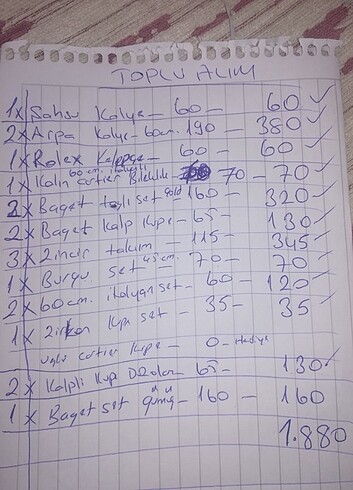 TOPLU ALIM
1x Şahsu Kolye - 60 - 60 ✓
2x Arpa Kolye - 60cm. 190 - 380 ✓
1x Rolex Kelepçe - 60 - 60 ✓
60 cm. italyan
1x Kalın cartier Bileklik 70 - 70 ✓
2x Baget taşlı set gold 160 - 320 ✓
2x Baget Kalp Küpe - 65 - 130 ✓
3x Zincir takım - 115 - 345 ✓
1x Burgu set 45 cm. - 70 - 70 ✓
2x 60 cm. italyan set - 60 - 120 ✓
1x Zirkon Küpe set - 35 - 35 ✓
cartier Küpe - 0 - Hediye
2x Kalpli Küpe - 65 - 130 ✓
1x Baget set gümüş - 160 - 160
1.880